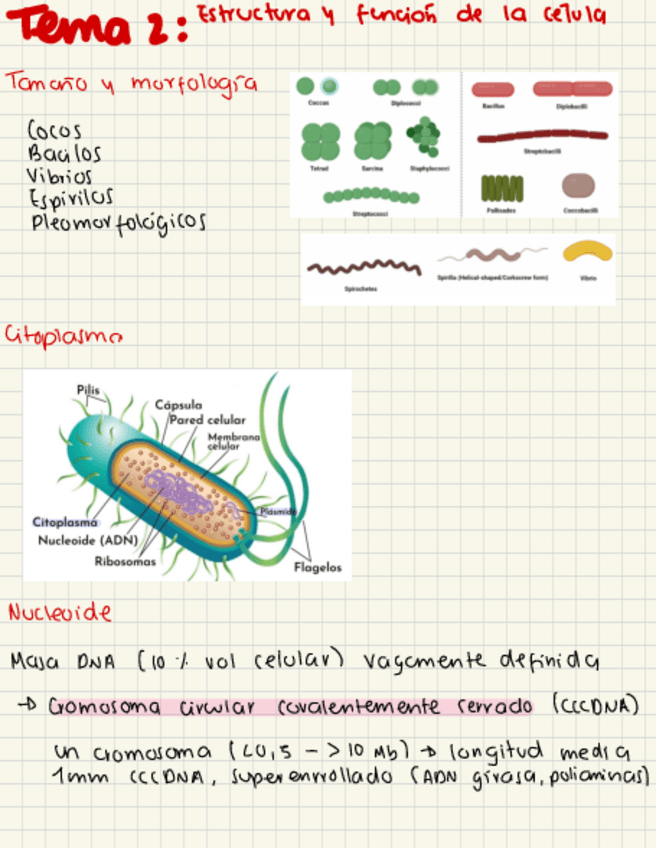 Tema 2: Estructura y función de la célula
Tamaño y morfología
Cocos
Bacilos
Vibrios
Espirilos
Pleomorfológicos
Coccus
Diplococci
Tetrad
Sarcina
Staphylococci
Streptococci
Bacillus
Diplobacilli
Streptobacilli
Palisades
Coccobacilli
Spirochetes
Spirilla (Helical-shaped/Corkscrew form)
Vibrio
Citoplasma
Pilis
Cápsula
Pared celular
Membrana
celular
Plásmido
Citoplasma
Nucleoide (ADN)
Ribosomas
Flagelos
Nucleoide
Masa DNA (10 % vol celular) vagamente definida
→ Cromosoma circular covalentemente cerrado (CCCDNA)
un cromosoma (<0,5 - >10 Mb) → longitud media
1mm CCCDNA, superenrrollado (ADN girasa, poliaminas)